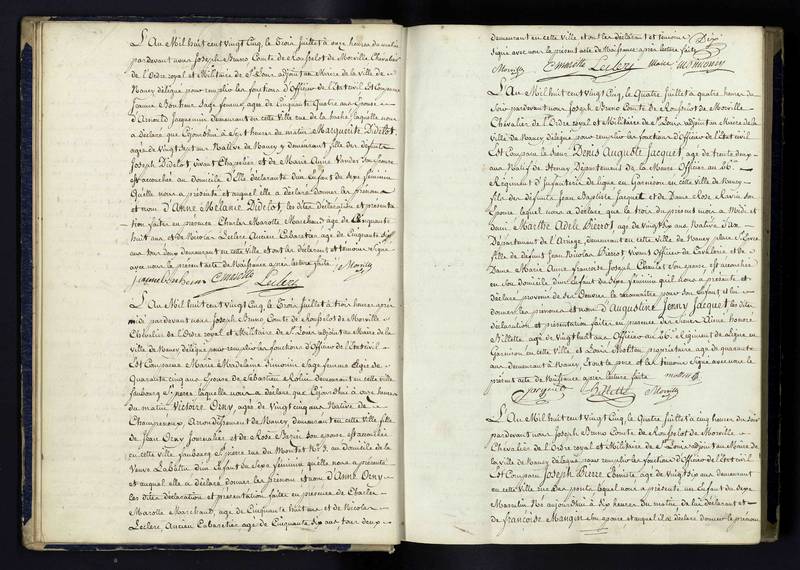 L'An Mil huit cent Vingt Cinq, le Trois Juillet à onze heures du matin
pardevant nous Joseph Bruno, Comte de Rousselot de Morville Chevalier
de l'Ordre royal et Militaire de St Louis adjoint au Maire de la Ville de
Nancy délégué pour remplir les fonctions d'Officier de l'Etat civil Est Comparue
Jeanne Bonheur Sage femme, âgée de Cinquante Quatre ans Epouse
d'Arnould Jacquemin demeurant en cette Ville rue de la hache, laquelle nous
a déclaré que Cejourdhui à Sept heures du matin Marguerite Didelot,
agée de Vingt Sept ans Native de Nancy y demeurant fille des défunts
Joseph Didelot vivant Chapelier et de Marie Anne Vander son Epouse
est accouchée au domicile d'Elle déclarante d'un Enfant du Sexe féminin
Qu'elle nous a présenté et auquel elle a déclaré donner les Prénoms
et nom d'Anne Mélanie Didelot, les dites déclaration et présenta
tion faites en présence Charles Marotte Marchand âgé de Cinquante
huit ans et de Nicolas Leclerc Ancien Cabaretier âgé de Cinquante six
ans tous deux demeurant en cette Ville et ont les déclarant et témoins Signé
avec nous le présent acte de Naissance après lecture faite
Jeanne bonheur C marotte Leclerc Morville
L'An Mil huit cent Vingt Cinq, le Trois Juillet à trois heures après
midi pardevant nous Joseph Bruno, Comte de Rousselot de Morville
Chevalier de l'Ordre royal et Militaire de St Louis adjoint au Maire de la
Ville de Nancy délégué pour remplir les fonctions d'Officier de l'Etat civil
Est Comparue Marie Madelaine Simonin Sage femme âgée de
Quarante cinq ans Epouse de Sébastien Rolin demeurant en cette ville
faubourg St pierre laquelle nous a déclaré que Cejourdhui à onze heures
du matin Victoire Orny, agée de Vingt cinq ans Native de
Champenoux Arrondissement de Nancy, demeurant en cette Ville fille
de Jean Orny Journalier et de Rose son épouse est accouchée
en cette ville faubourg St pierre rue du Montet No 3. au Domicile de la
Veuve d'un Enfant du Sexe féminin qu'elle nous a présenté
et auquel elle a déclaré donner les Prénom et nom d'Anne Orny
les dites déclaration et présentation faites en présence de Charles
Marotte Marchand, âgé de Cinquante huit ans et de Nicolas
Leclerc, Ancien Cabaretier âgé de Cinquante six ans, tous deux
demeurant en cette Ville et ont les déclarant et témoins
signé avec nous le présent acte de Naissance après lecture faite
Morville C marotte Leclerc Marie simonin
L'An Mil huit cent Vingt Cinq, le Quatre Juillet à quatre heures du
Soir pardevant nous Joseph Bruno, Comte de Rousselot de Morville
Chevalier de l'Ordre royal et Militaire de St Louis adjoint au Maire de la
Ville de Nancy délégué pour remplir les fonctions d'Officier de l'Etat civil
Est Comparu le Sieur Denis Auguste Jacquet, âgé de trente deux
ans Natif de Stenay Département de la Meuse Officier au 26e
Régiment d'Infanterie de ligne en Garnison en cette Ville de Nancy
fils des défunts Jean Baptiste Jacquet et de Dame Rose son
Epouse lequel nous a déclaré que le trois du présent mois à Midi et
demi Marthe Adele Pierrot, agée de Vingt six ans Native d'Ax
Département de l'Arriège, demeurant en cette Ville de Nancy place St Epvre
fille de défunt Jean Nicolas Pierrot Vivant Officier de Cavalerie et de
Dame Marie Anne françoise Joseph son épouse, est accouchée
en son Domicile d'un Enfant du Sexe féminin qu'il nous a présenté et
déclaré provenir de ses Oeuvres le reconnaître pour son Enfant et lui
donner les prénoms et nom d'Augustine Jenny Jacquet les dites
déclaration et présentation faites en présence des Sieurs Aimé honoré
Billette, agé de Vingt huit ans Officier au 26e Régiment de Ligne en
Garnison en cette Ville et Louis propriétaire agé de quarante
ans demeurant à Nancy et ont le père et les témoins Signé avec nous le
présent acte de Naissance après lecture faite
Jacquet Billette Morville
L'An Mil huit cent Vingt Cinq, le Quatre Juillet à cinq heures du Soir
pardevant nous Joseph Bruno, Comte de Rousselot de Morville
Chevalier de l'Ordre royal et Militaire de St Louis adjoint au Maire de
la Ville de Nancy délégué pour remplir les fonctions d'Officier de l'Etat civil
Est Comparu Joseph Pierre âgé de Vingt six ans demeurant
en cette Ville rue des ponts lequel nous a présenté un Enfant du Sexe
Masculin Né aujourdhui à dix heures du matin, de lui déclarant et
de françoise Mangin son épouse et auquel il a déclaré donner les prénoms